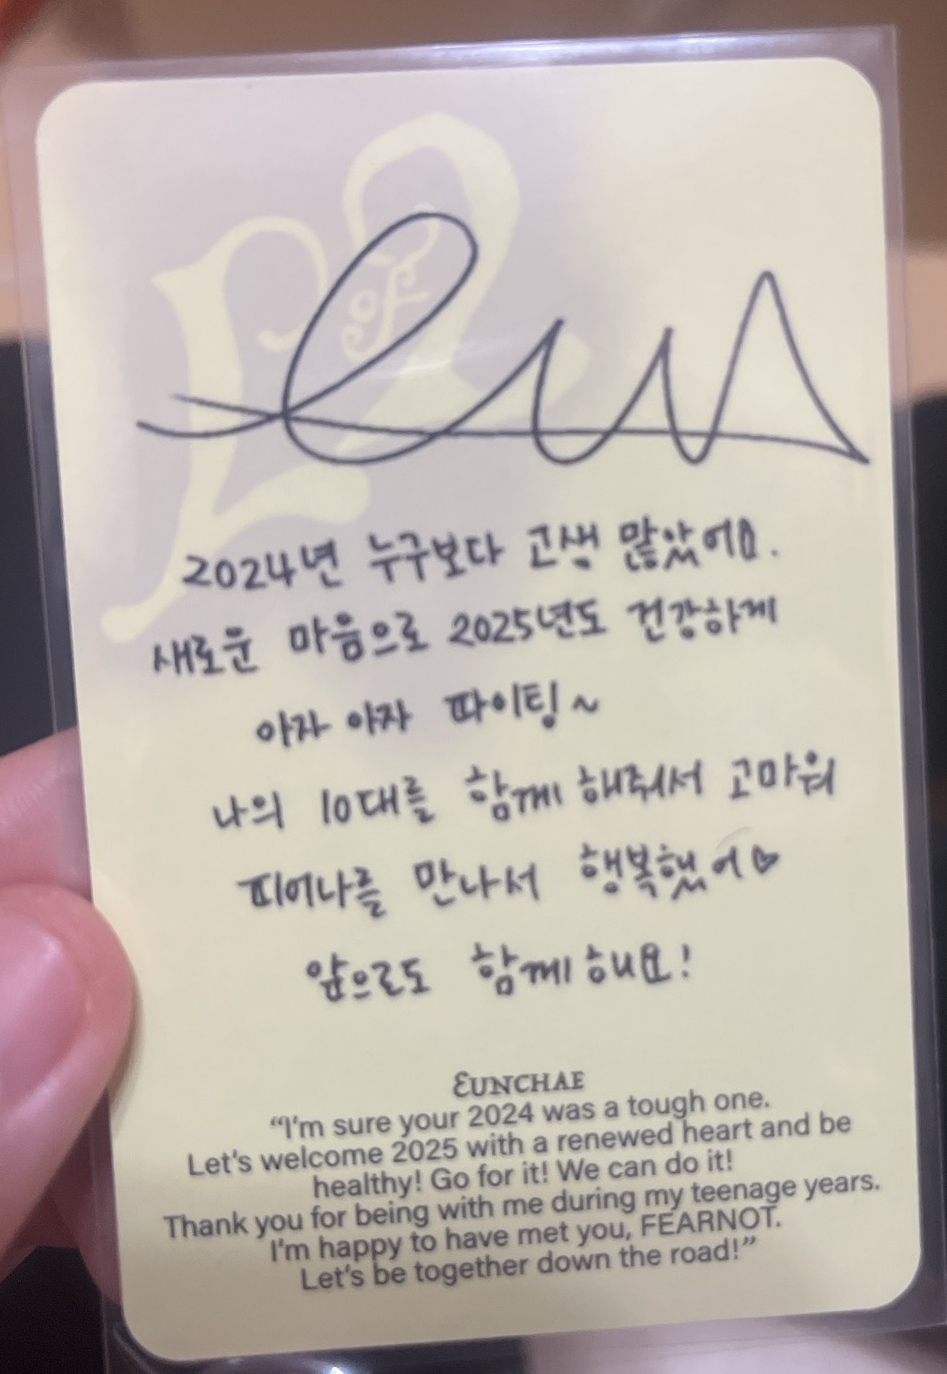 of
2024년 누구보다 고생 많았어요.
새로운 마음으로 2025년도 건강하게
아자 아자 파이팅~
나의 10대를 함께 해줘서 고마워
피어나를 만나서 행복했어♡
앞으로도 함께 해요!
EUNCHAE
“I'm sure your 2024 was a tough one.
Let's welcome 2025 with a renewed heart and be
healthy! Go for it! We can do it!
Thank you for being with me during my teenage years.
I'm happy to have met you, FEARNOT.
Let's be together down the road!”